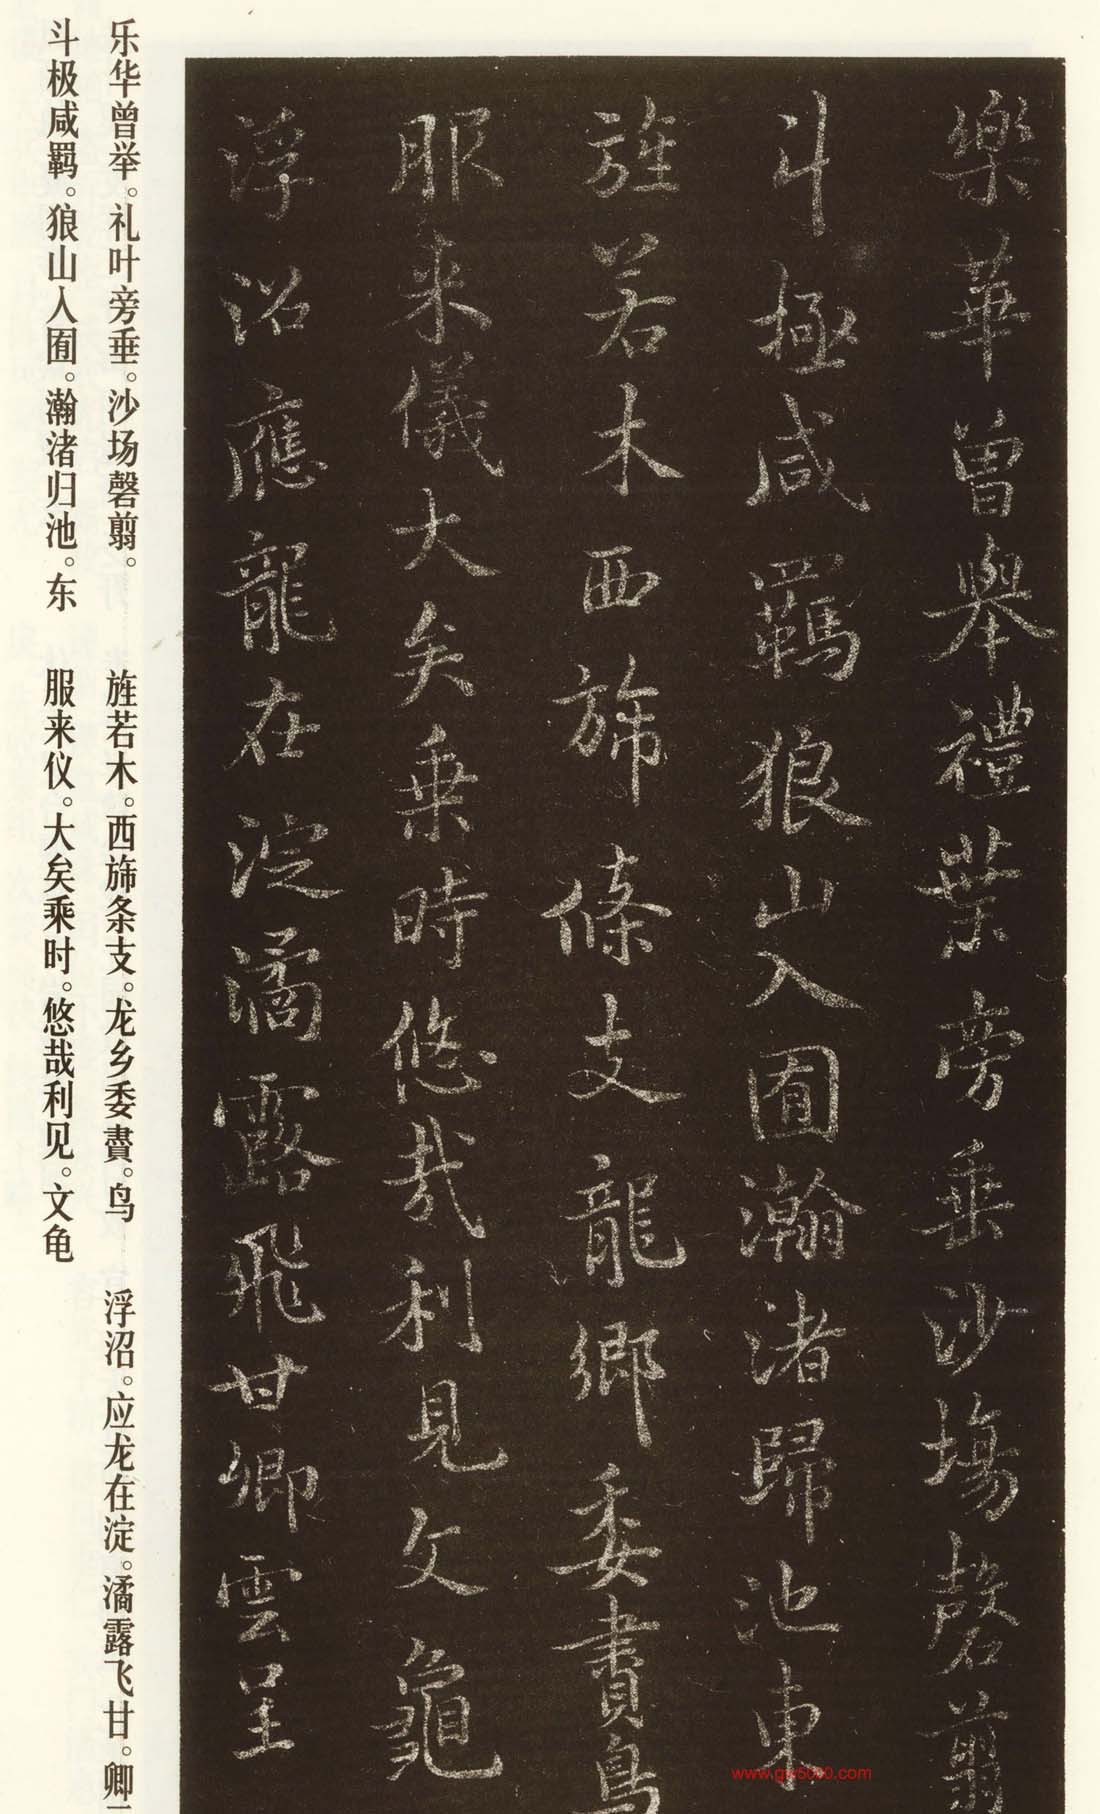 樂華曾舉禮葉旁垂沙場磬翦
斗極咸羈狼山入囿瀚渚歸池東
旌若木西旆條支龍鄉委賮鳥
服来儀大矣乗時悠哉利見文龜
浮沼應龍在淀潏露飛甘卿雲呈
乐华曾举。礼叶旁垂。沙场磬翦。
斗极咸羁。狼山入囿。瀚渚归池。东
旌若木。西旆条支。龙乡委賮。鸟
服来仪。大矣乘时。悠哉利见。文龟
浮沼。应龙在淀。潏露飞甘。卿